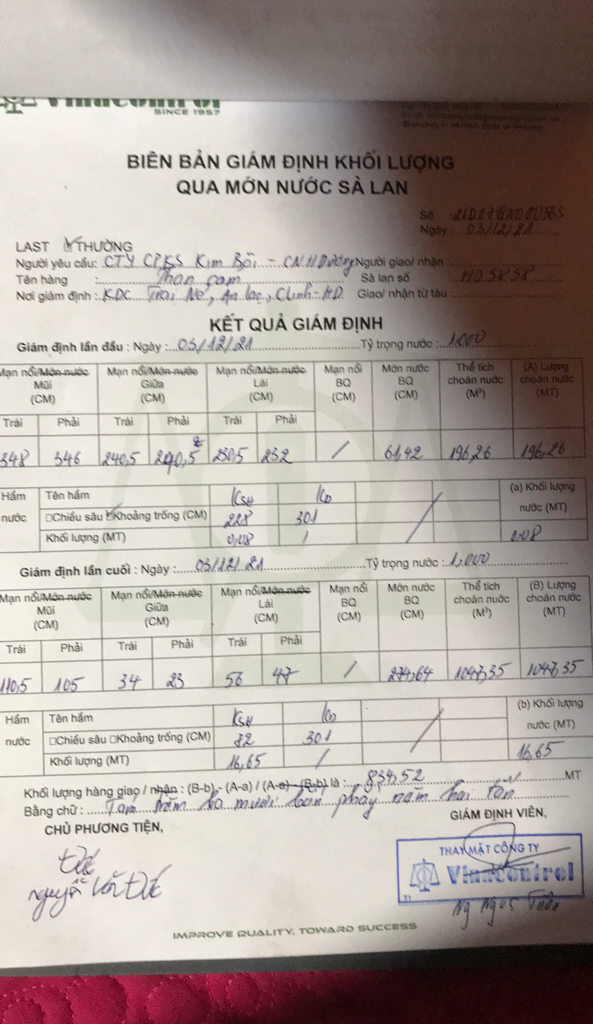 Vinacontrol
SINCE 1957
BIÊN BẢN GIÁM ĐỊNH KHỐI LƯỢNG
QUA MỚN NƯỚC SÀ LAN
Số
Ngày: 03/12/21
LAST THƯỜNG
Người yêu cầu: CTY CPKS Kim Bôi - CN H Dương Người giao/ nhận:
Tên hàng : Than cam Sà lan số HD 5858
Nơi giám định: KDC Trại Nẻ, An lạc, CLinh-HD. Giao/ nhận từ tàu
KẾT QUẢ GIÁM ĐỊNH
Giám định lần đầu: Ngày: 03/12/21 Tỷ trọng nước: 1.000
Mạn nổi/Món nước Mũi (CM) Mạn nổi/Món nước Giữa (CM) Mạn nổi/Món nước Lái (CM) Mạn nổi BQ (CM) Món nước BQ (CM) Thể tích choán nước (M³) (A) Lượng choán nước (MT)
Trái Phải Trái Phải Trái Phải
348 346 240,5 240,5 230,5 232 / 61,42 196,26 196,26
Hầm nước Tên hầm KSH KD (a) Khối lượng nước (MT)
□Chiều sâu □Khoảng trống (CM) 228 301
Khối lượng (MT) 0,08 / 0,08
Giám định lần cuối: Ngày: 03/12/21 Tỷ trọng nước: 1.000
Mạn nổi/Món nước Mũi (CM) Mạn nổi/Món nước Giữa (CM) Mạn nổi/Món nước Lái (CM) Mạn nổi BQ (CM) Món nước BQ (CM) Thể tích choán nước (M³) (B) Lượng choán nước (MT)
Trái Phải Trái Phải Trái Phải
110,5 105 34 23 56 47 / 274,64 1047,35 1047,35
Hầm nước Tên hầm KSH KD (b) Khối lượng nước (MT)
□Chiều sâu □Khoảng trống (CM) 32 301
Khối lượng (MT) 16,65 / 16,65
Khối lượng hàng giao / nhận : (B-b) - (A-a) / (A-a) - (B-b) là : 834,52 MT
Bằng chữ : Tám trăm ba mươi bốn phẩy năm hai tấn
CHỦ PHƯƠNG TIỆN, GIÁM ĐỊNH VIÊN,
THAY MẶT CÔNG TY
Vinacontrol
T1
Đức
Nguyễn Văn Đức
Ng Ngọc Tuân
IMPROVE QUALITY, TOWARD SUCCESS